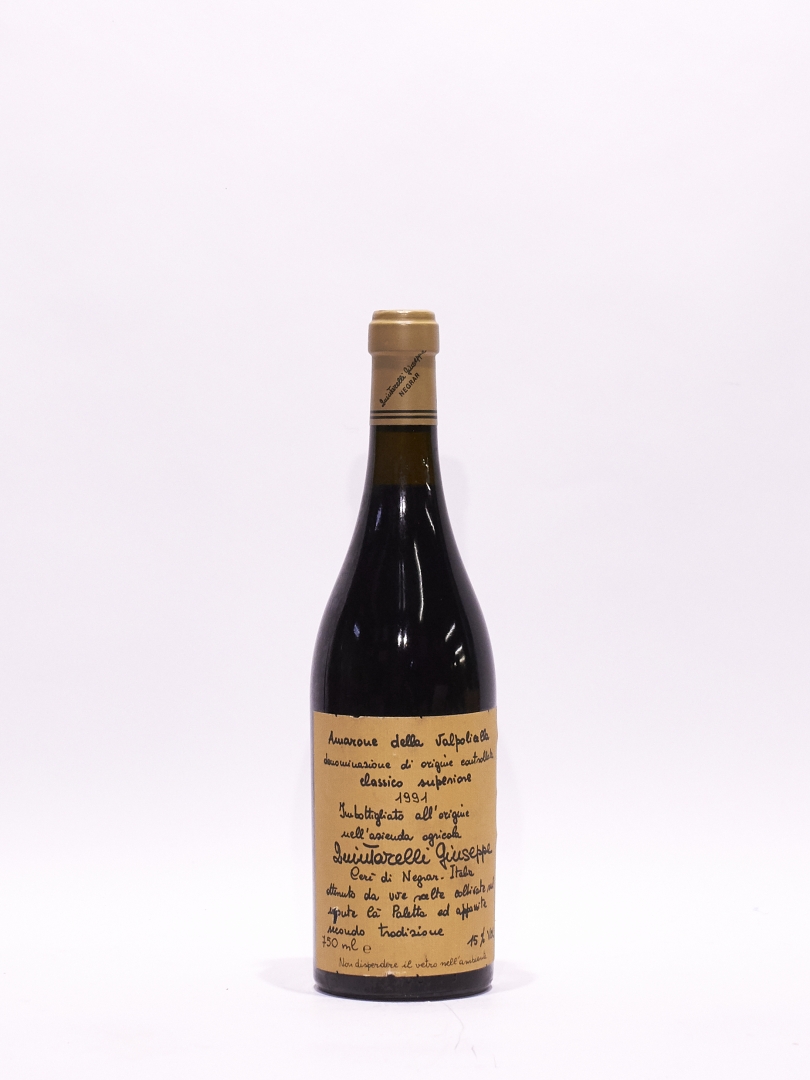 Quintarelli Giuseppe
NEGRAR
Amarone della Valpolicella
denominazione di origine controllata
classico superiore
1991
Imbottigliato all'origine
nell'azienda agricola
Quintarelli Giuseppe
Cerè di Negrar. Italia
ottenuto da uve scelte coltivate sul
monte Cà Paletta ed appassite
secondo tradizione
750 ml e 15% Vol
Non disperdere il vetro nell'ambiente